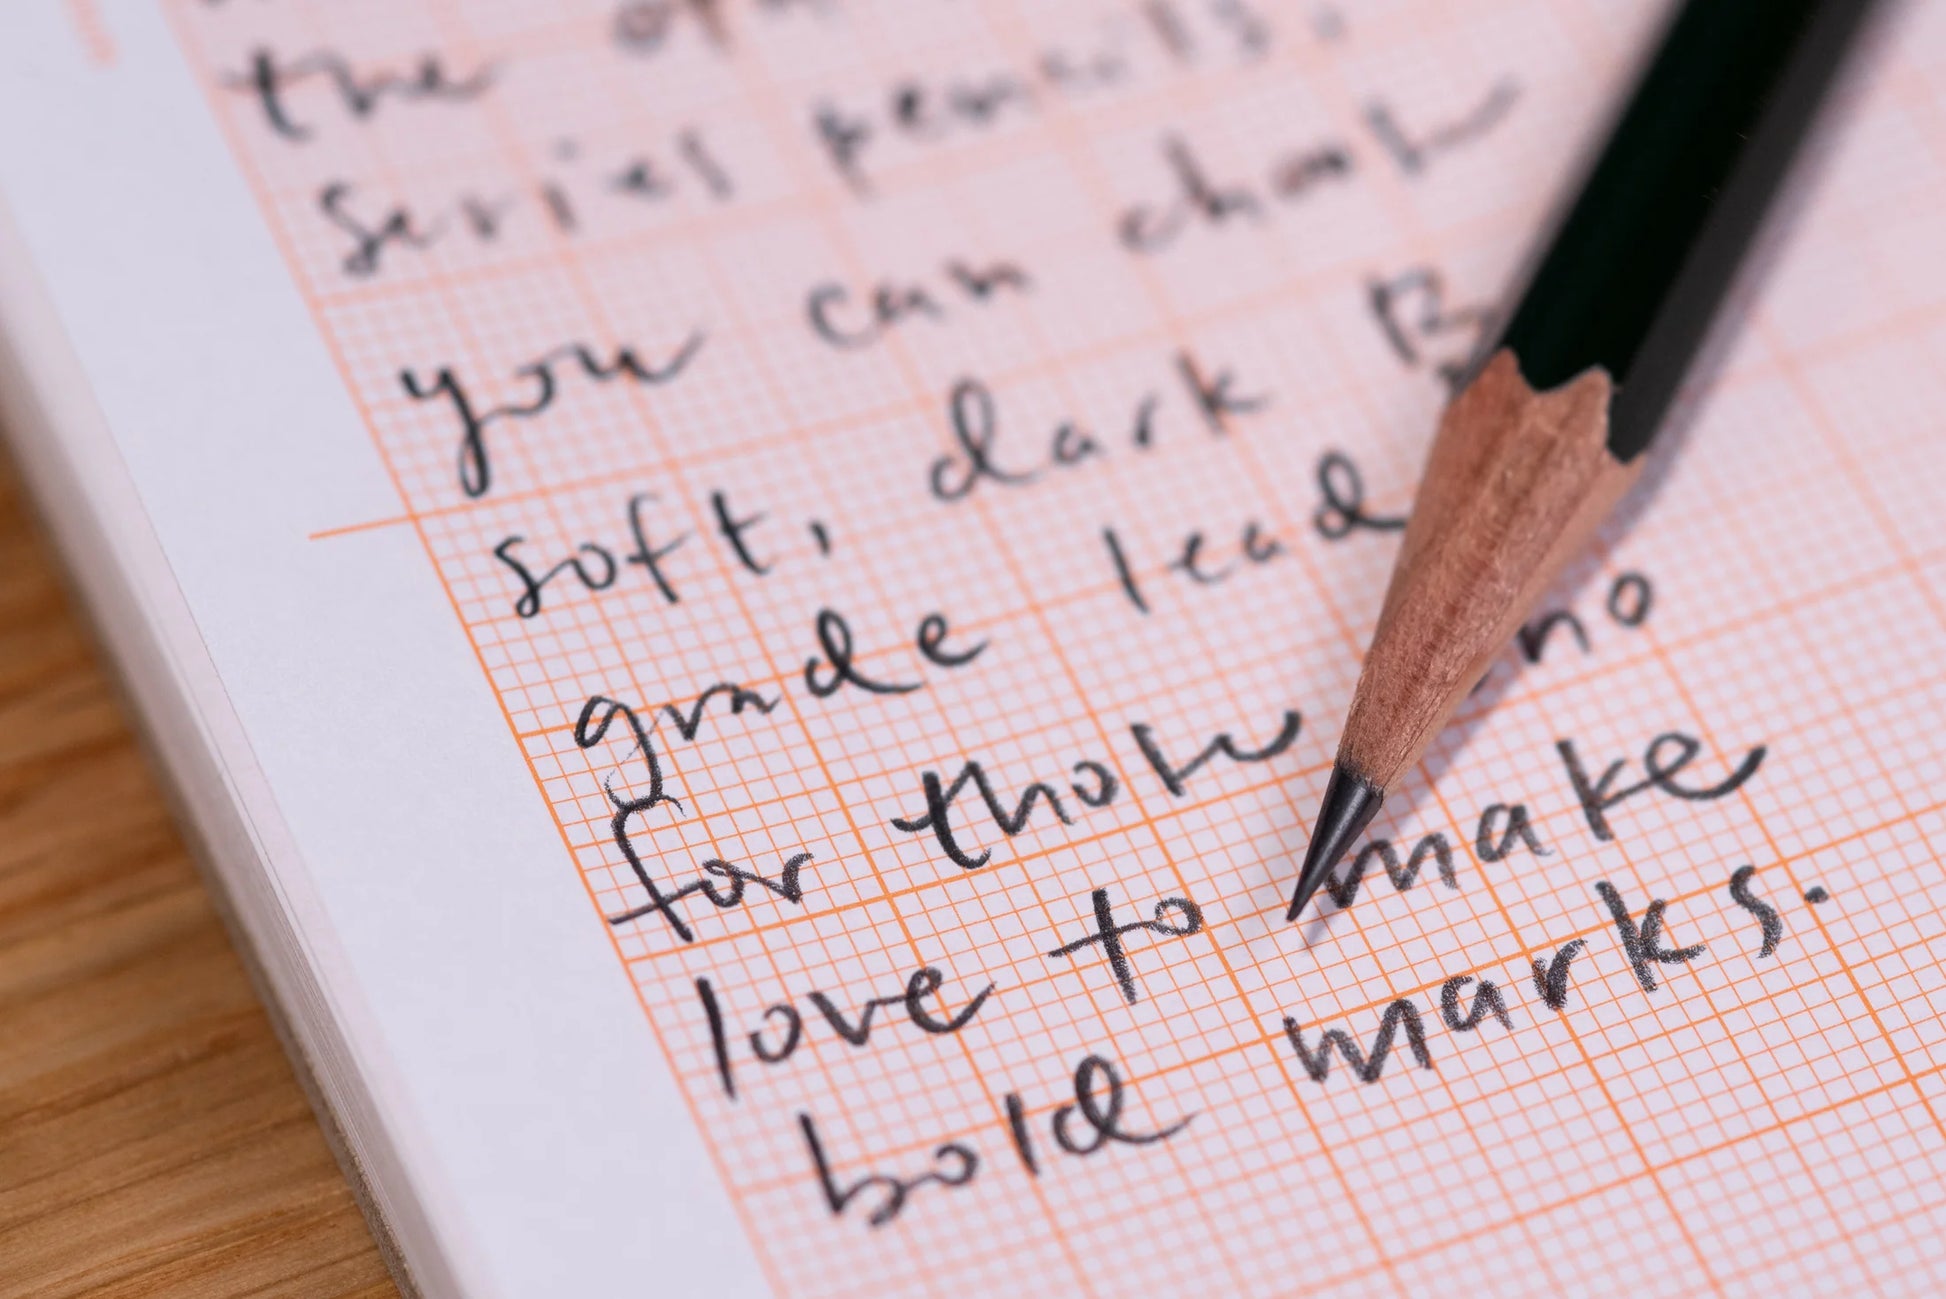 the
Seriel pencils.
you can
soft, dark B
grade lead
for those no
love to make
bold marks.